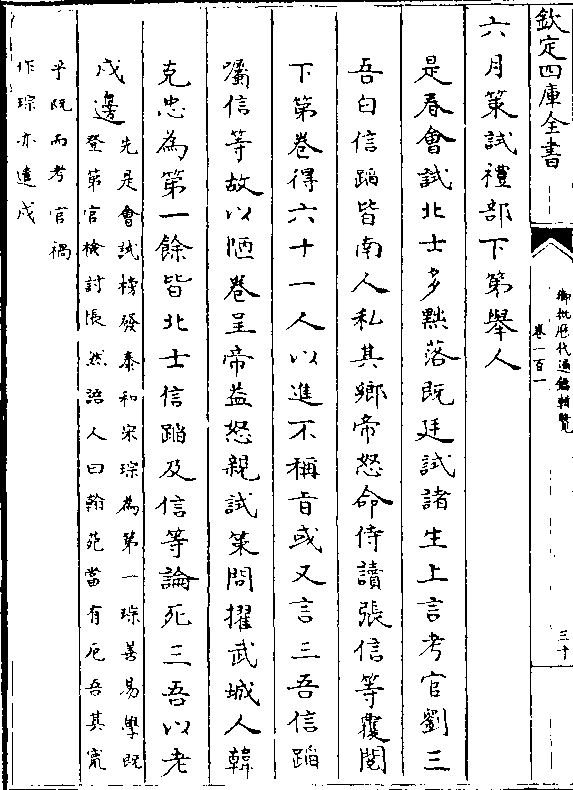 欽定四庫全書
御批歷代通鑑輯覽
卷一百一
三十
六月策試禮部下第舉人
是春會試北士多黜落既廷試諸生上言考官劉三
吾白信蹈皆南人私其鄉帝怒命侍讀張信等覆閱
下第卷得六十一人以進不稱旨或又言三吾信蹈
囑信等故以陋卷呈帝益怒親試策問擢武城人韓
克忠為第一餘皆北士信蹈及信等論死三吾以老
戍邊
先是會試榜發泰和宋琮為第一琮善易學既
登第官檢討悵然語人曰翰苑當有厄吾其寃
乎既而考官禍
作琮亦遣戍